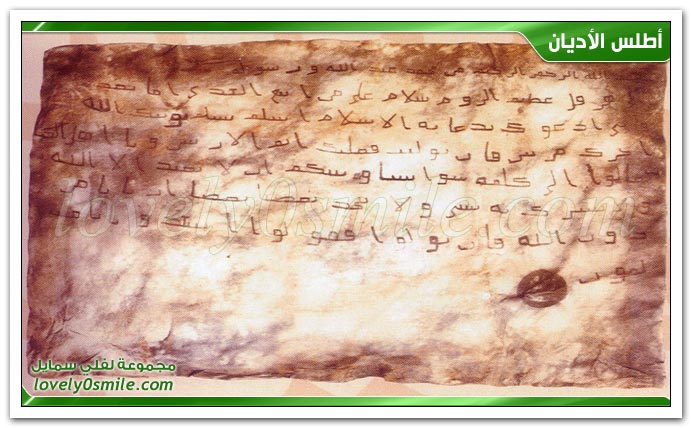 أطلس الأديان
الله الرحمن الرحيم من محمد عبد الله ورسوله
هرقل عظيم الروم سلام على من اتبع الهدى اما بعد
ادعوك بدعاية الاسلام اسلم تسلم يوتك الله
اجرك مرتين فان توليت فعليك اثم الاريسين ويا اهل
تعالوا الى كلمة سوا بيننا وبينكم ان لا نعبد الا الله
به ولا يتخذ بعضنا بعضا من
دون الله فان تولوا فقولوا
lovely0smile.com
مجموعة لفلي سمايل
lovely0smile.com